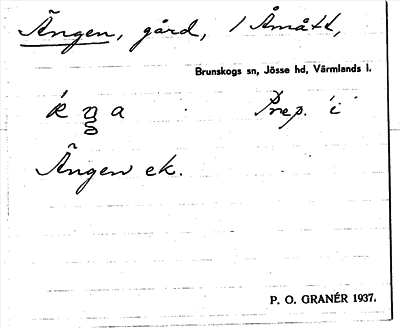 Ängen, gård, 1 Åmått,
Brunskogs sn, Jösse hd, Värmlands l.
Prep. 'i'
Ängen ek.
P. O. GRANÉR 1937.